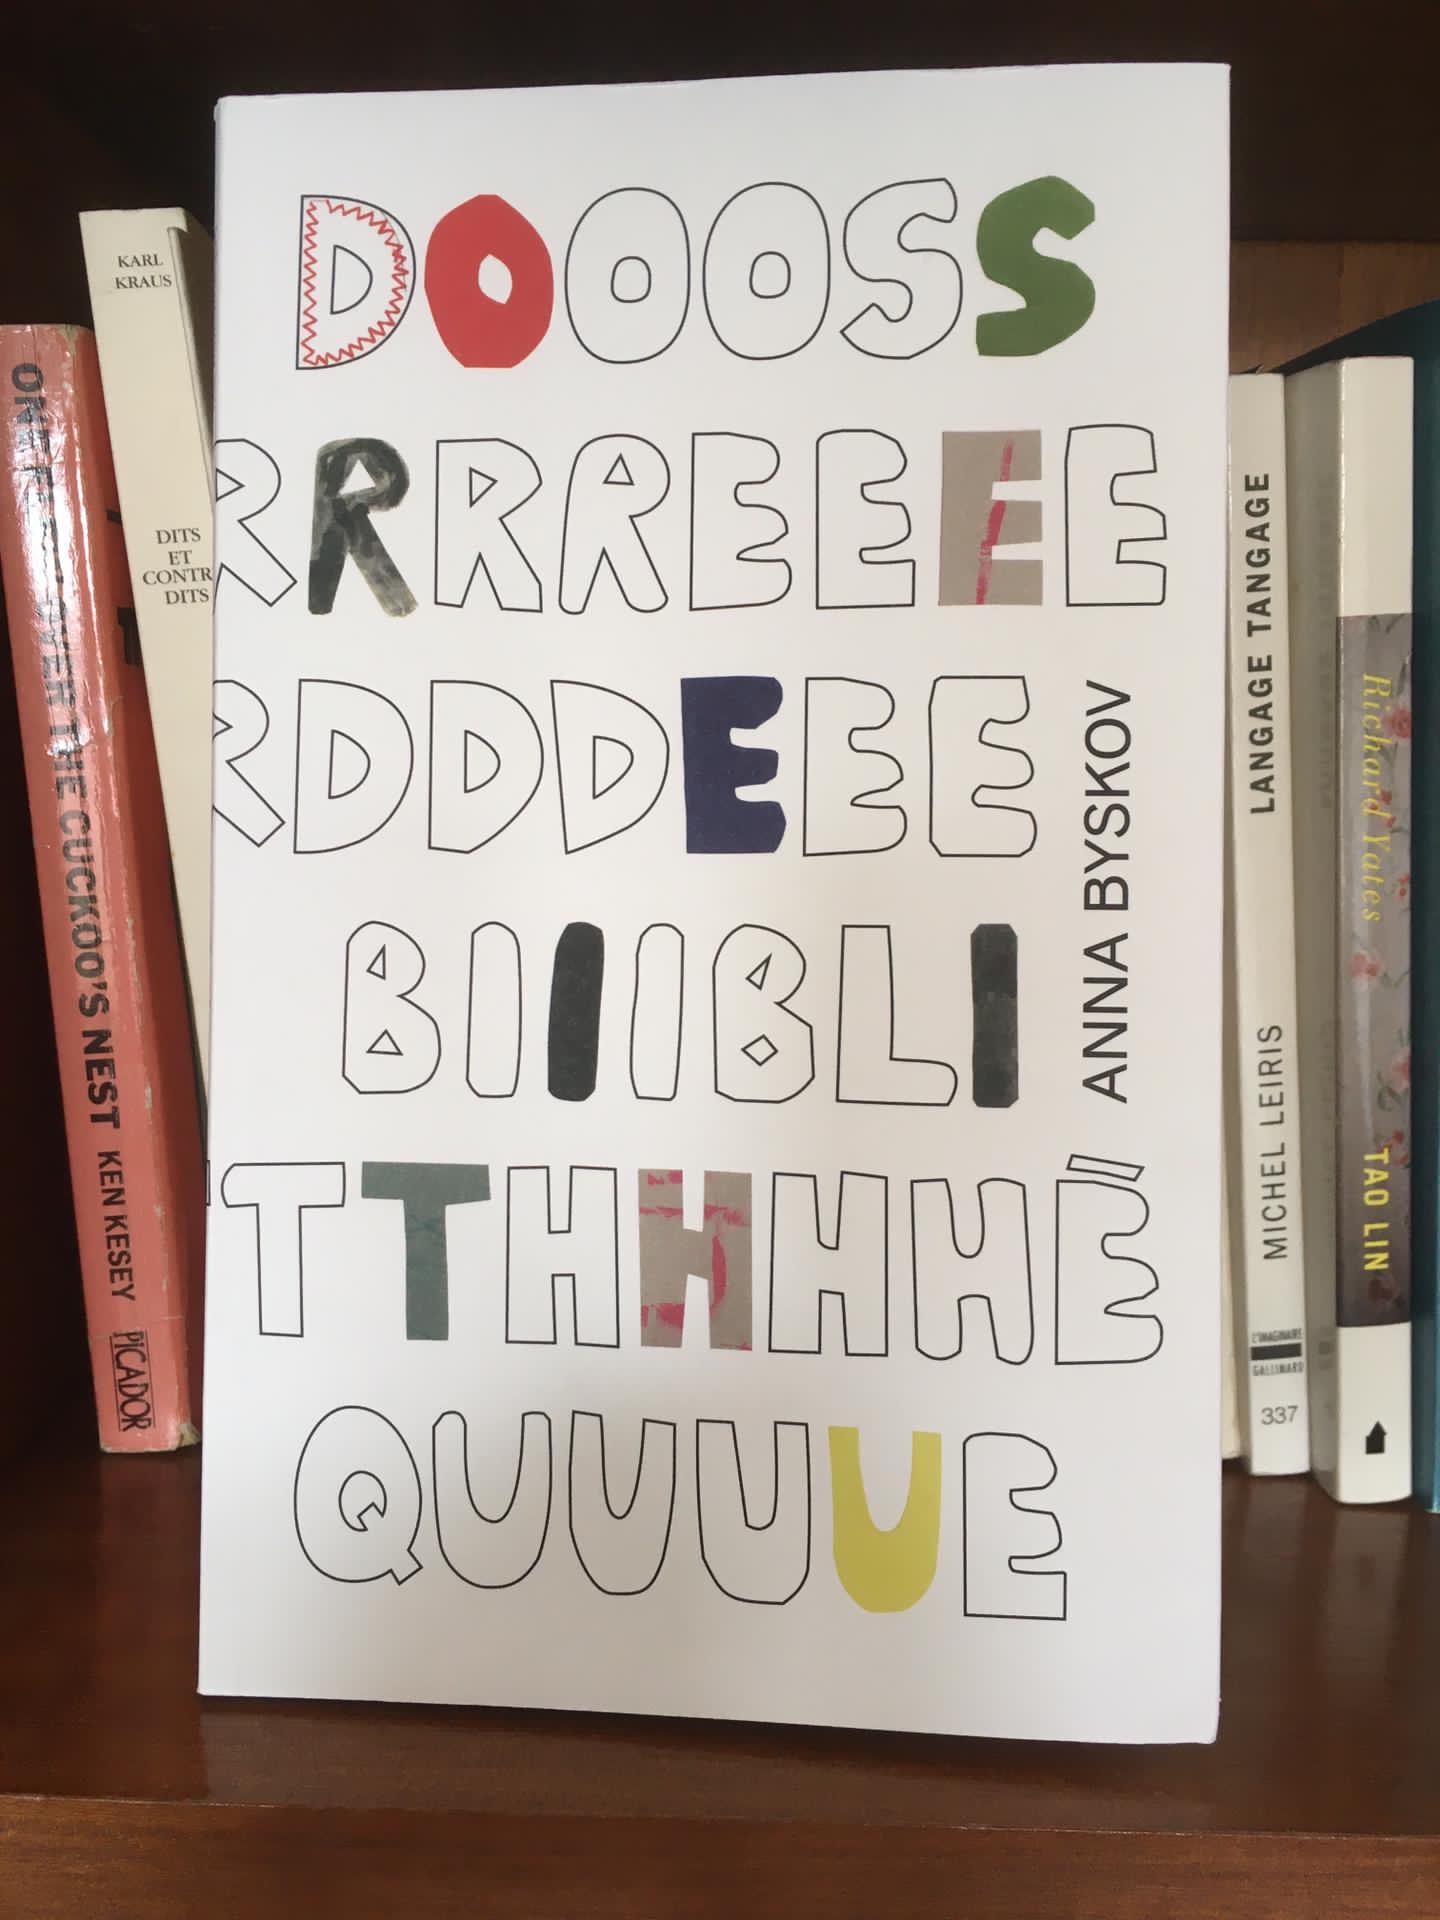 DOOOSS
RRRREEEE
RDDDEEE
BIIIBLI
TTHHHHÉ
QUUUUE
ANNA BYSKOV
OVER THE CUCKOO'S NEST KEN KESEY
PICADOR
KARL
KRAUS
DITS
ET
CONTR
DITS
LANGAGE TANGAGE
MICHEL LEIRIS
L'IMAGINAIRE
GALLIMARD
337
Richard Yates
TAO LIN